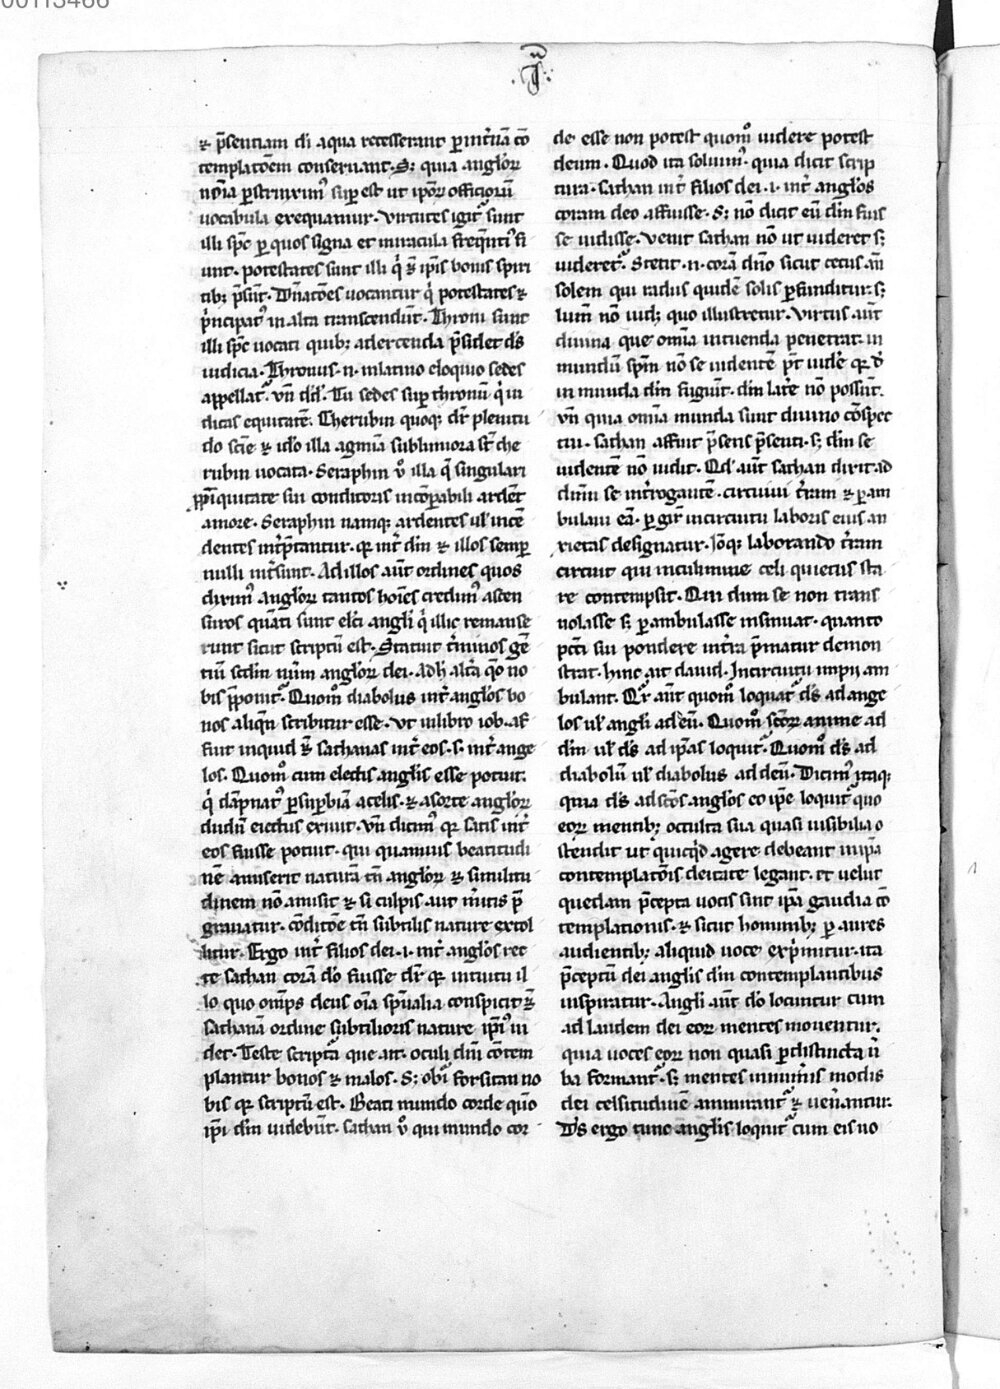 00113466
.I.
⁊ p̄sentiam di᷎ aqua recesserant ꝑ int̾nā cō
templatōem conseruant. S; quia anglor᷎
noīa ꝑstrinximꝰ suꝑ est ut ip̄or᷎ officiorū
uocabula exequamur. Virtutes igit᷎ sunt
illi sp̄c ꝑ quos signa et miracula freq̄ntiꝰ fi
unt. potestates sunt illi q̇
tib; p̄sūt. Dn̄atōes uocantur q̇ potestates ⁊
p̄ncipatꝰ in alta transcendūt. Throni sunt
illi sp̄c uocati quib; ad exercenda p̄sidet ds̄
iudicia. Thronus .n. in latino eloquio sedes
appellat᷎. vn̄ dc̄. Tu sedes suꝑ thronū q̇ iu
dicas equitatē. Cherubin quoq; dr̄ plenitu
do scīe ⁊ idō illa agmīa sublimiora st̄ che
rubin uocata. Seraphin v̊ illa q̄ singulari
ꝓpīquitate sui conditoris incōꝑabili ardēt
amore. Seraphin namq; ardentes ul᷎ incē
dentes int̾p̄tantur. qꝛ int̾ dm̄ ⁊ illos semꝑ
nulli int̾sunt. Ad illos aūt ordines quos
diximꝰ anglor᷎ tantos hoīes credimꝰ ascen
suros quāti sunt elc̄i angli q̇ illic remanse
runt sicut scriptū est. Statuit t̾minos gē
tiū scd̄m nūm anglor᷎ dei. Adh᷎ alt̾a qō no
bis ꝓponit᷎. Quom̊ diabolus int̾ anglos bo
nos aliqn̄ scribitur esse. Vt in libro iob. af
fuit inquid ⁊ sathanas int̾ eos .s. int̾ ange
los. Quom̊ cum electis anglis esse potuit.
q̇ dāpnatꝰ ꝑ suꝑbiā a celis. ⁊ a sorte anglor᷎
dudū eiectus exiuit. Vn̄ dicimꝰ qꝛ satis int̾
eos fuisse potuit. qui quamuis beatitudi
nē amiserit naturā tn̄ anglor᷎ ⁊ similitu
dinem nō amisit ⁊ si culpis aut m̾itis p̄
grauatur. cōditōe tn̄ subtilis nature extol
litur. Ergo int̾ filios dei .i. int̾ anglos rec
te sathan corā dō fuisse dr̄ qꝛ intuitu il
lo quo omīps deus oīa spūalia conspicit ⁊
sathanā ordine subtilioris nature ip̄iꝰ ui
det. Teste script᷎a que ait. oculi dn̄i cōtem
plantur bonos ⁊ malos. S; obi᷎ forsitan no
bis qꝛ scriptū est. Beati mundo corde qūo
ip̄i dm̄ uidebūt. sathan v̊ qui mundo cor
de esse non potest quom̊ uidere potest
deum. Quod ita soluimꝰ. quia dicit scrip
tura. Sathan int̾ filios dei .i. int̾ anglos
coram deo affuisse. S; nō dicit eū dm̄ fuis
se uidisse. Venit sathan nō ut uideret s;
uideret᷎. Stetit .n. corā dn̄o sicut cecus an̄
solem qui radiis quidē solis ꝑfunditur. s;
lum̄ nō uid; quo illustretur. Virtus aūt
diuina que omīa intuenda penetrat. in
mundū spm̄ nō se uidentē
in munda dm̄ fugiūt. dm̄ lat̾e nō possūt.
vn̄ quia omīa munda sunt diuino cōspec
tui. Sathan affuit p̄sens p̄senti. s; dm̄ se
uidentē nō uidit. Qd᷎ aūt sathan dixit ad
dn̄m se int̾rogantē. circuiui t̾ram ⁊ ꝑam
bulaui eā. ꝑ gir᷎ in circuitu laboris eius an
xietas designatur. Ioq; laborando t̾ram
circuit qui in culmine celi quietus sta
re contempsit. Qui dum se non trans
uolasse s; ꝑambulasse insinuat. quanto
pctī sui pondere int̾ra p̄matur demon
strat. hinc ait dauid. In circuitu impii am
bulant. Qr᷎ aūt quom̊ loquat᷎ ds̄ ad ange
los ul᷎ angli ad eū. Quom̊ scōr᷎ anime ad
dm̄ ul᷎ ds̄ ad ip̄as loquit᷎. Quom̊ ds̄ ad
diabolū ul᷎ diabolus ad deū. Dicimꝰ itaq;
quia ds̄ ad scōs anglos eo ip̄e loquit᷎ quo
eor᷎ mentib; occulta sua quasi inuisibilia o
stendit ut quicq̇d agere debeant in ip̄a
contemplatōis deitate legant. et uelut
quedam p̄cepta uocis sint ip̄a gaudia cō
templationis. ⁊ sicut hominib; ꝑ aures
audientib; aliquid uoce exp̄mitur. ita
p̄ceptū dei anglis dm̄ contemplantibus
inspiratur. Angli aūt dō locuntur cum
ad laudem dei eor᷎ mentes mouentur.
quia uoces eor᷎ non quasi ꝑ distincta ū
ba formant᷎. s; mentes inmīnis modis
dei celsitudinē ammirant᷎ ⁊ uen̾antur.
Ds̄ ergo tunc anglis loquit᷎ cum eis uo